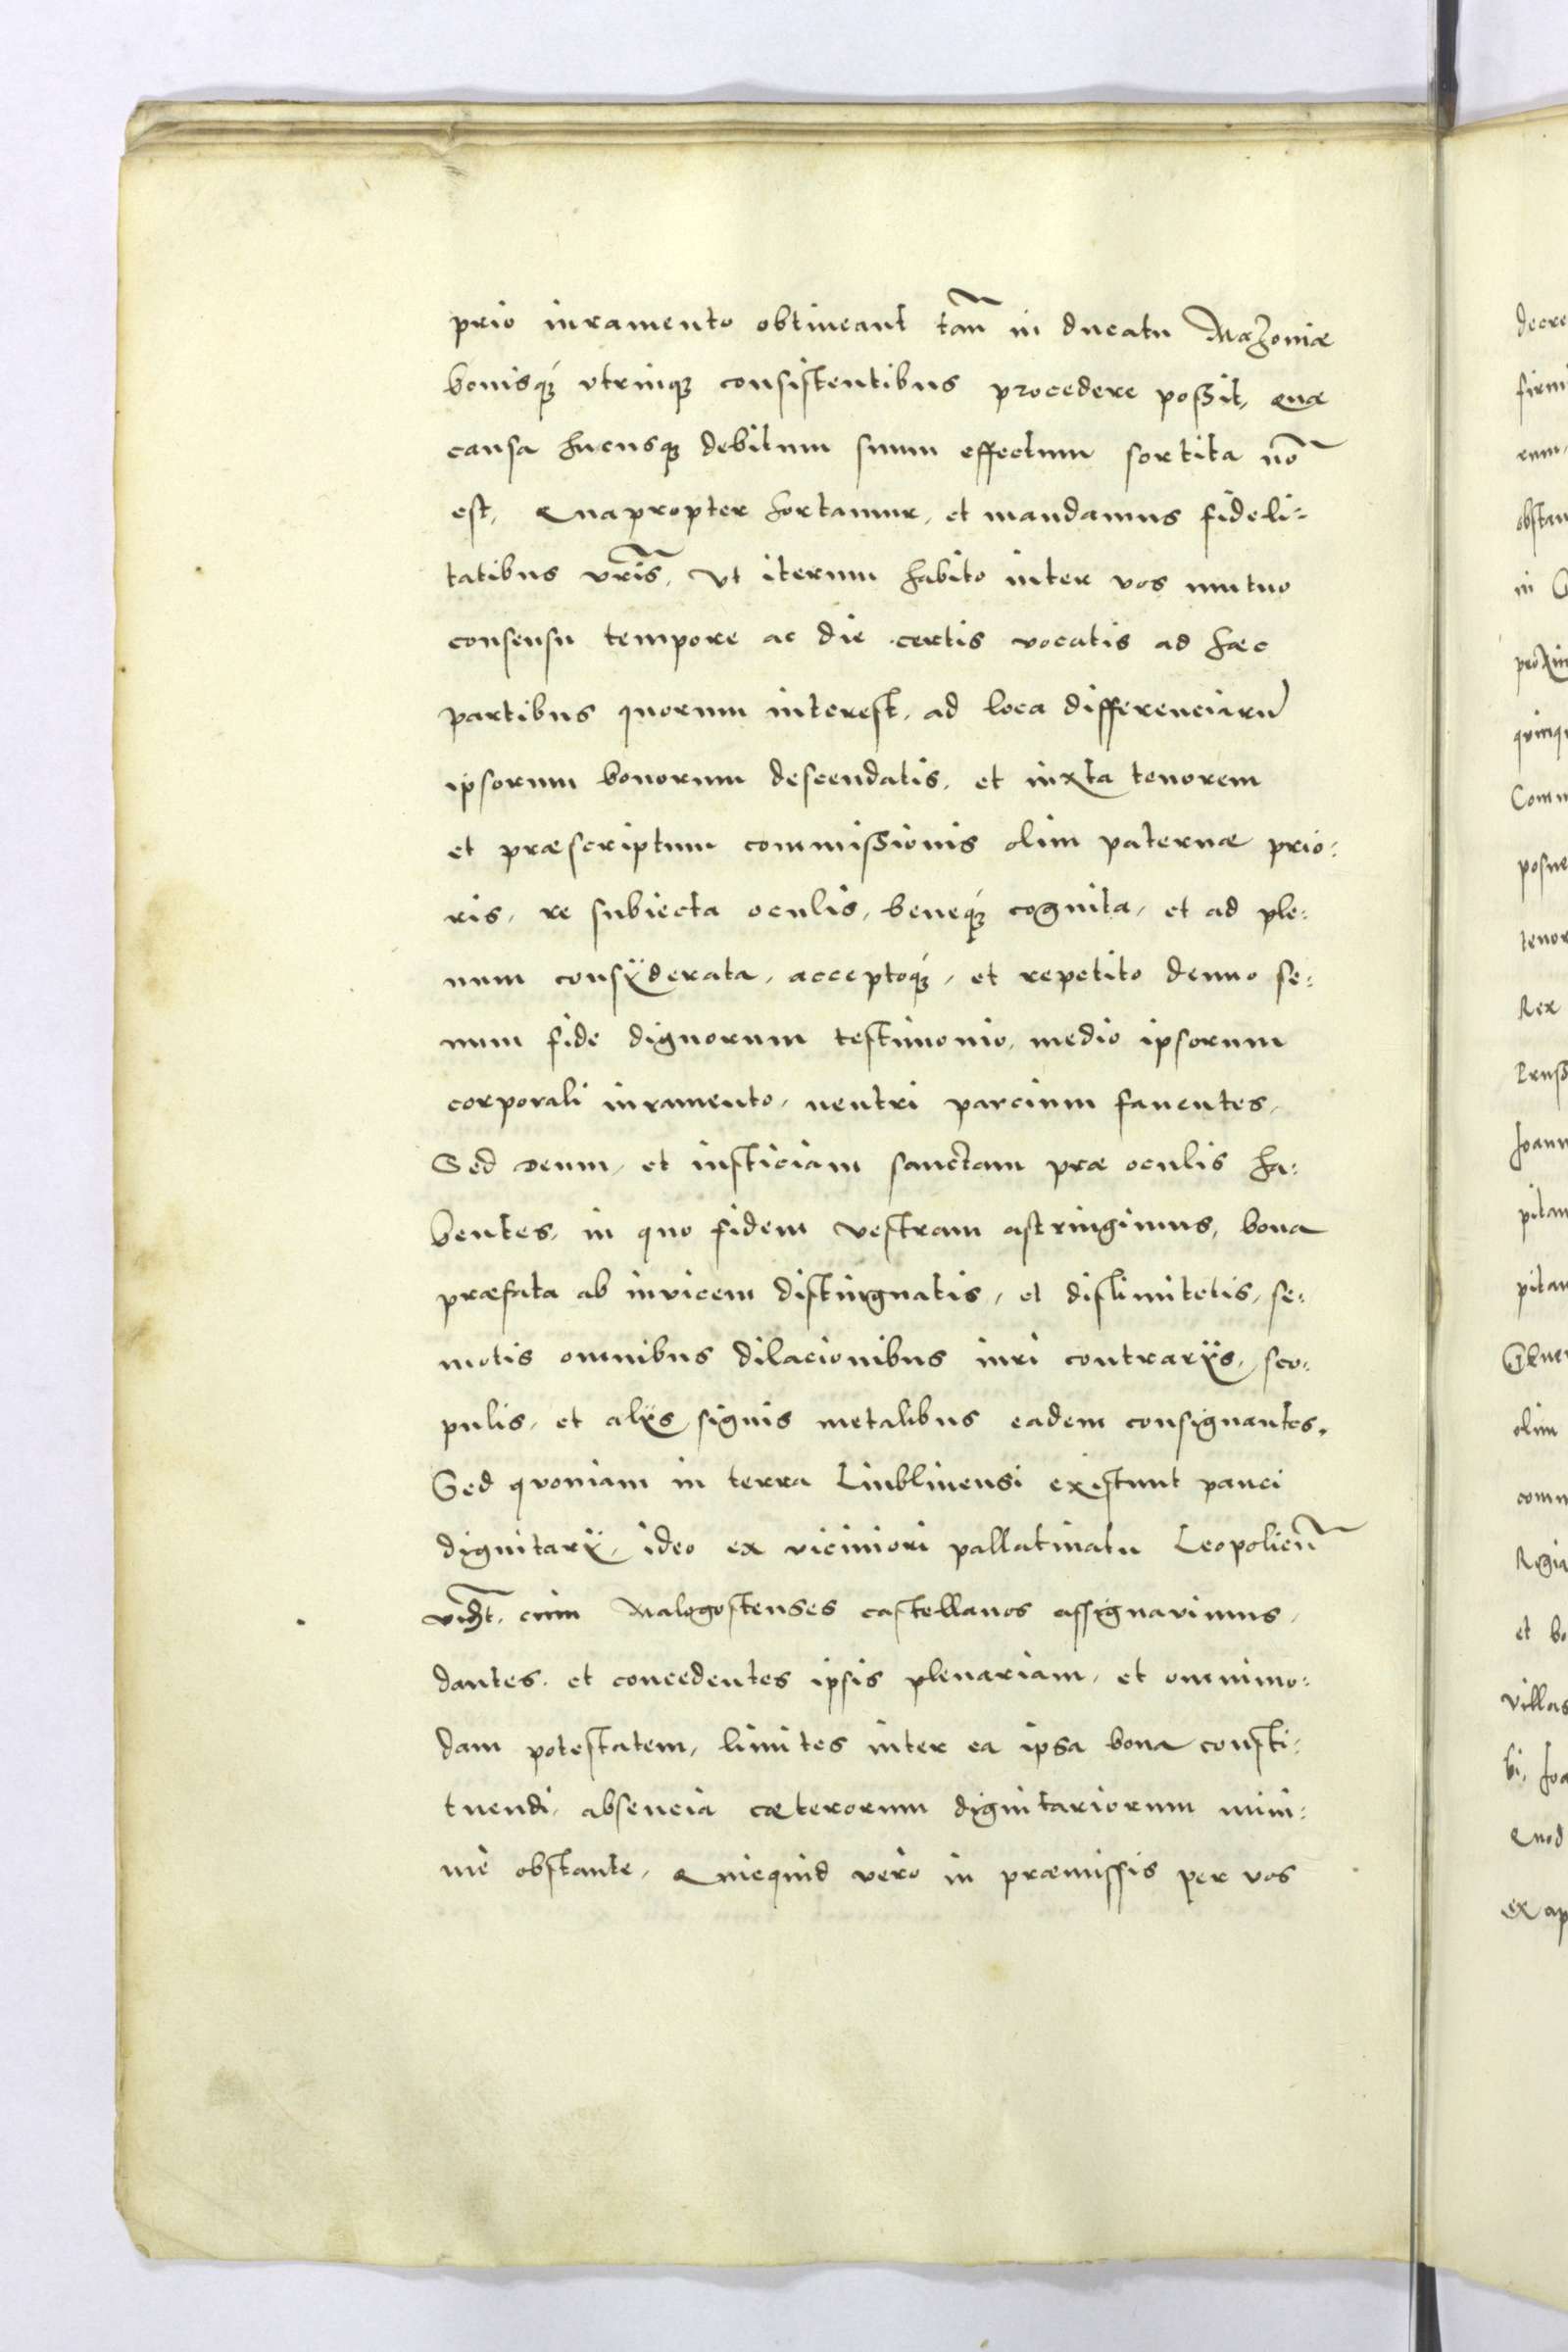 prio iuramento obtineant tam̃ in ducatu Mazoniæ
bonisq́ꝫ vtrinqꝫ consistentibus procedere poßit, quæ
causa hucusqꝫ debitum suum effectum sortita nõ
est, Quapropter hortamur, et mandamus fideli:
tatibus vr̃is, Vt iterum habito inter vos mutuo
consensu tempore ac die certis vocatis ad hæc
partibus quorum interest, ad loca differenciarũ
ipsorum bonorum descendatis, et iuxta tenorem
et præscriptum commißionis olim paternæ prio:
ris, re subiecta oculis, beneq́ꝫ cognita, et ad ple:
num consÿderata, acceptoq́ꝫ, et repetito denuo se:
num fide dignorum testimonio, medio ipsorum
corporali iuramento, neutri parcium fauentes,
Sed Deum, et iusticiam sanctam præ oculis ha:
bentes, in quo fidem vestram astringimus, bona
præfata ab inuicem distinguatis, et dislimitetis, se:
motis omnibus dilacionibus iuri contrarÿs, sco:
pulis, et alÿs signis metalibus eadem consignantes.
Sed quoniam in terra Liublinensi existunt pauci
dignitarÿ, ideo ex viciniori pallatinatu Leopolieñ
vidꝫt, cum Malogostenses castellanos assignauimus,
dantes, et concedentes ipsis plenariam, et omnimo:
dam potestatem, limites inter ea ipsa bona consti:
tuendi, absencia cæterorum dignitariorum mini:
mè obstante, Quicquid verò in præmissis per vos
decre
firmi
rum,
obstan
in
proxim
quinqu
Comm
posue
tenor
Rex
Pruß
Joann
pitan
pitan
olim
comm
Regia
et bo
villas
bi, Joa
Quod
ex ap